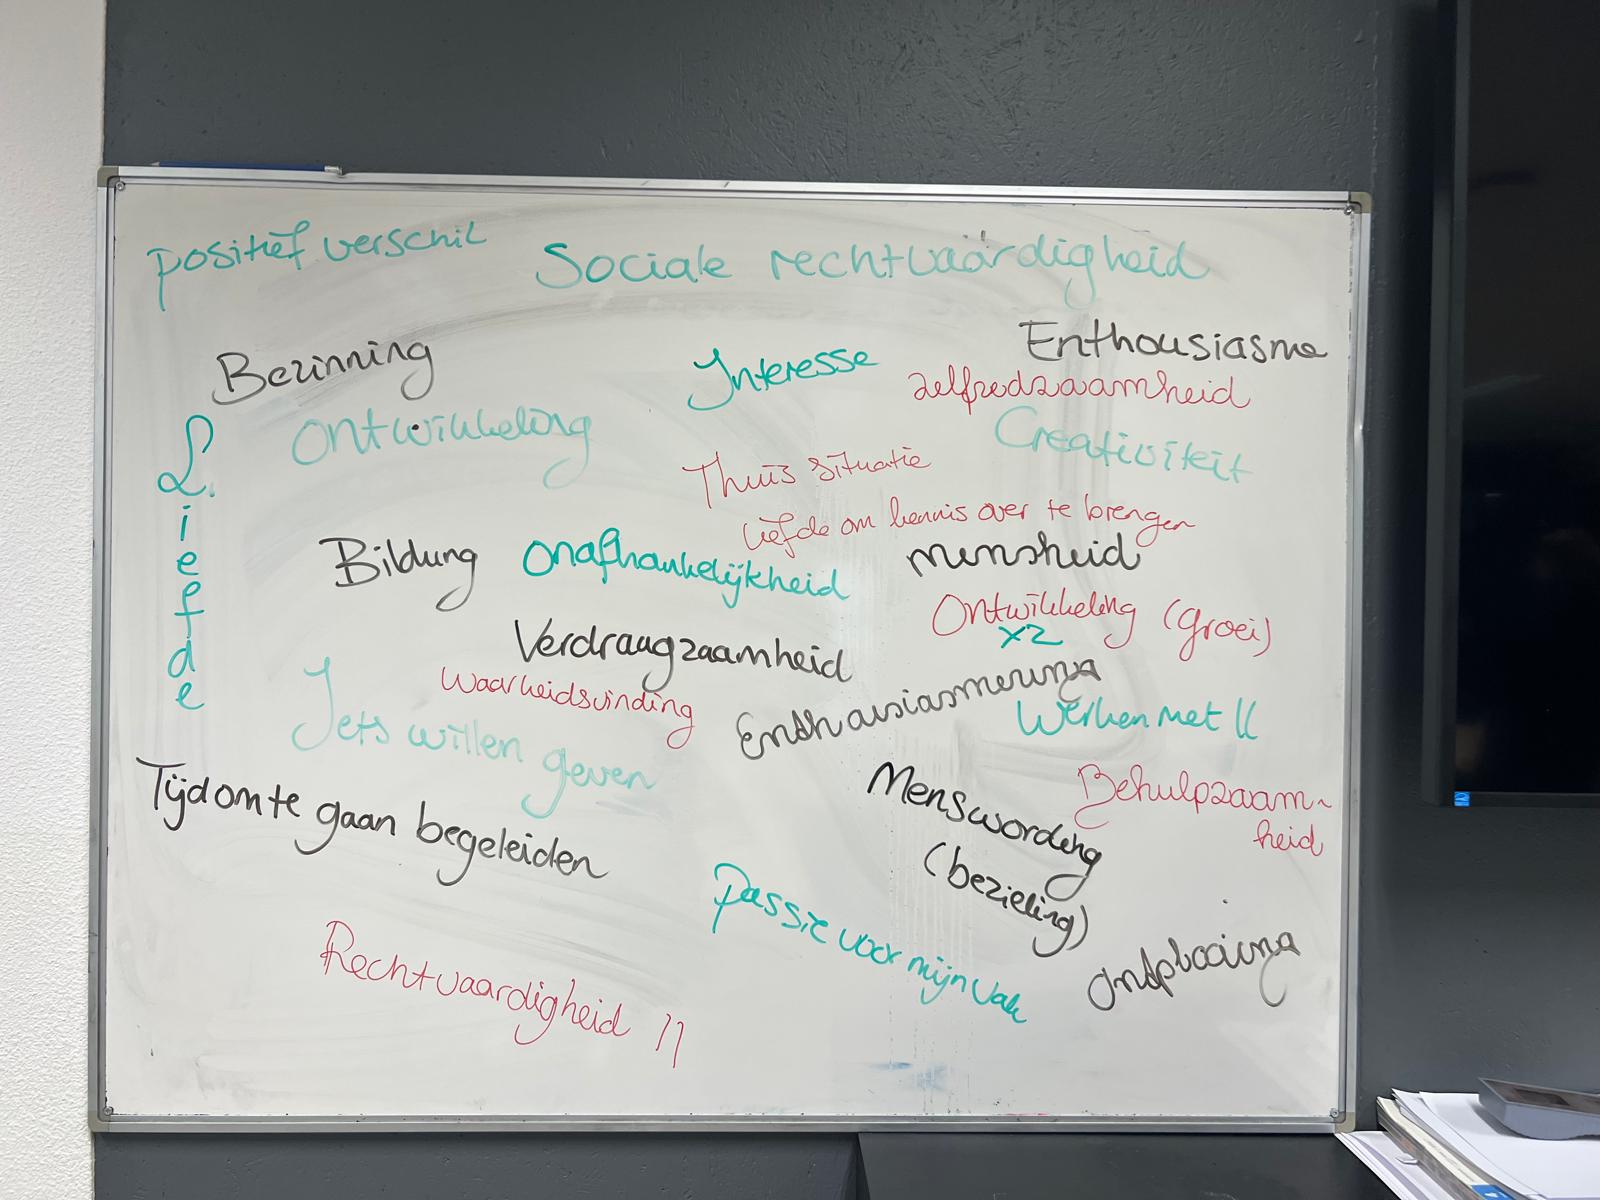 positief verschil
Sociale rechtvaardigheid
Enthousiasme
Bezinning
Interesse
zelfredzaamheid
Ontwikkeling
Creativiteit
Liefde
Thuis situatie
liefde om kennis over te brengen
Bildung
Onafhankelijkheid
mensheid
Ontwikkeling (groei)
x2
Verdraagzaamheid
Waarheidsvinding
Enthousiasmering
Werken met ll
Iets willen geven
Tijd om te gaan begeleiden
Menswording
(bezieling)
Behulpzaam~
heid
Passie voor mijn vak
Ontplooiing
Rechtvaardigheid !!